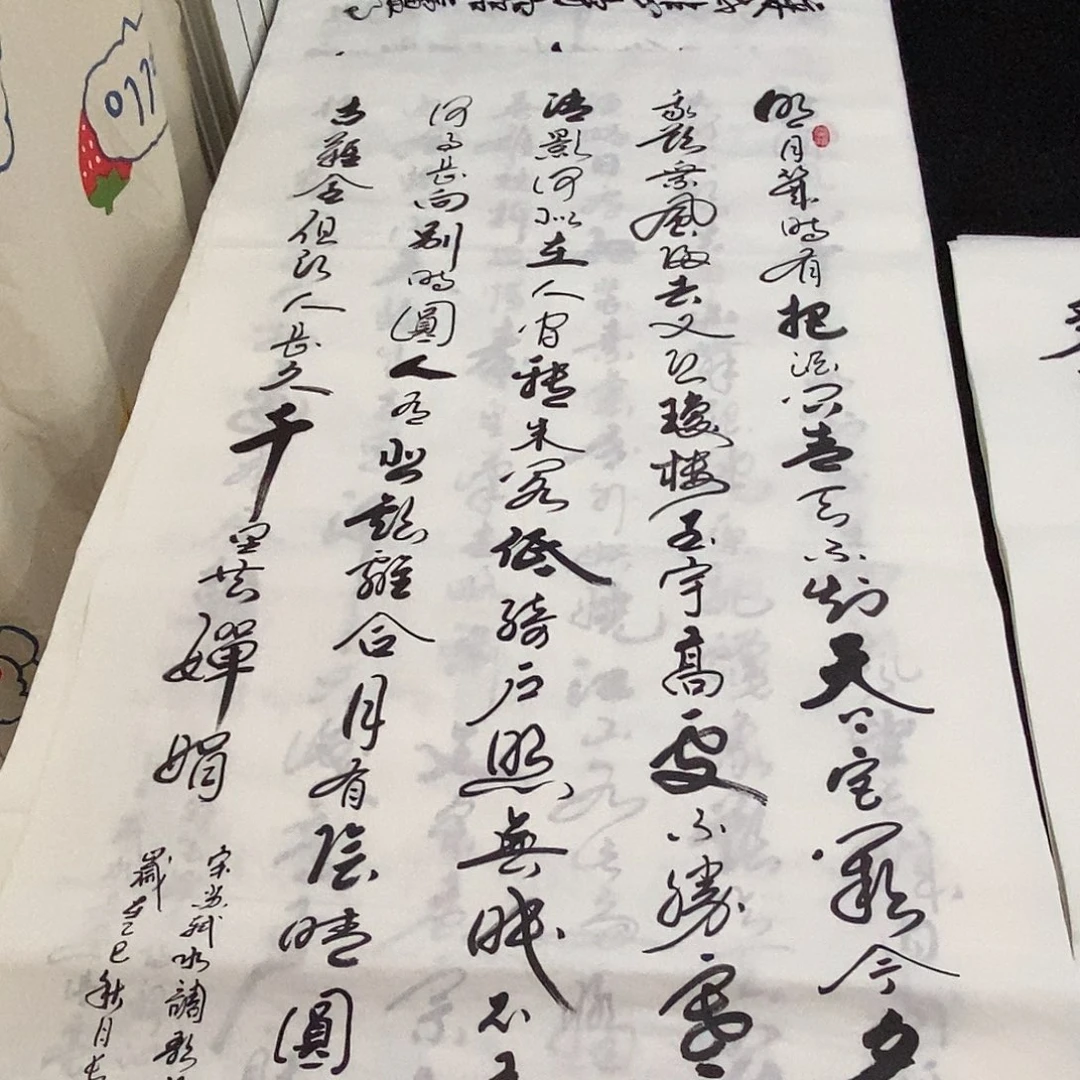 明月幾時有把酒問青天不知天上宮闕今夕
我欲乘風歸去又恐瓊樓玉宇高處不勝寒
清影何似在人間轉朱閣低綺戶照無眠不
何事長向別時圓人有悲歡離合月有陰晴圓
古難全但願人長久千里共嬋娟
宋蘇軾水調歌
歲乙巳秋月